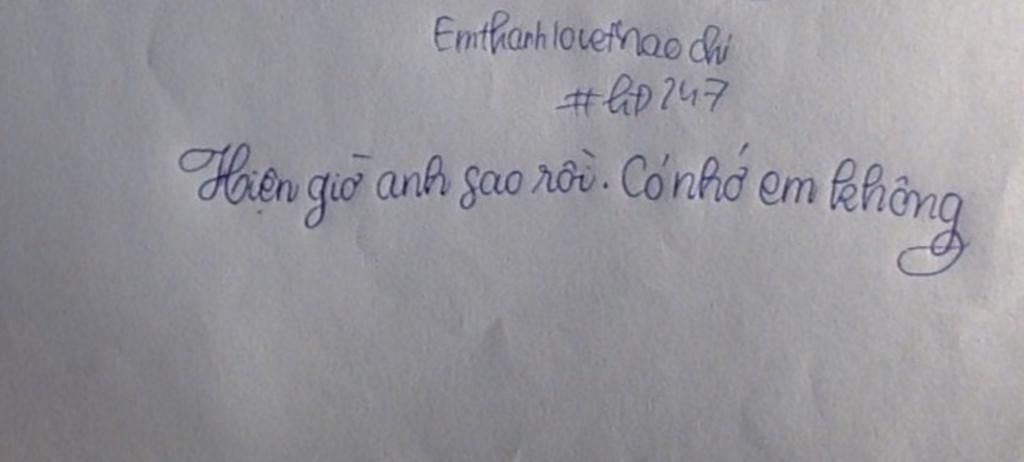 Emthanhlovethao chi
#GD247
Hiện giờ anh sao rồi. Có nhớ em không